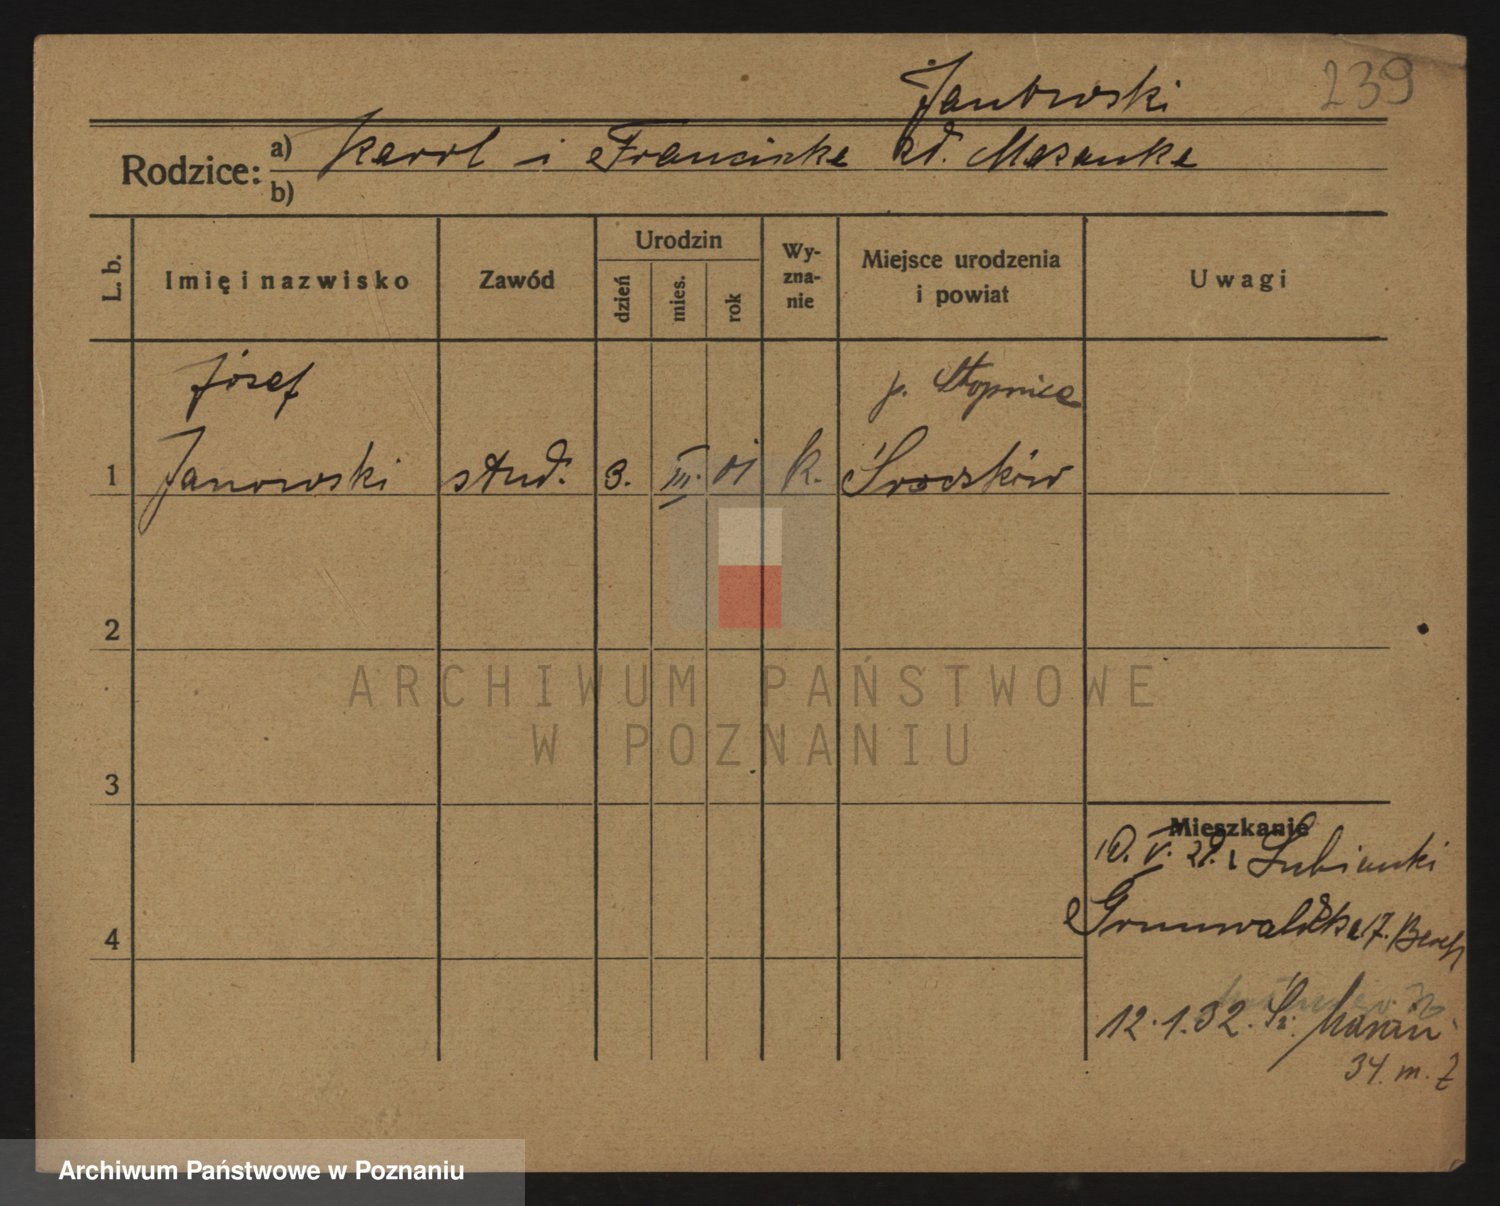 239
Janowski
Rodzice: a) Karol i Franciszka zd. Mazanka
b)
L. b. Imię i nazwisko Zawód Urodzin dzień mies. rok Wy-zna-nie Miejsce urodzenia i powiat Uwagi
Józef p. Stopnica
1 Janowski stud. 3. III. 01 k. Sroczków
2
3
4
Mieszkanie
10. V. 29. Lubianki
Grunwaldzka 17.
12.1.32. Św. Marcin
34. m. 7
ARCHIWUM PAŃSTWOWE
W POZNANIU
Archiwum Państwowe w Poznaniu